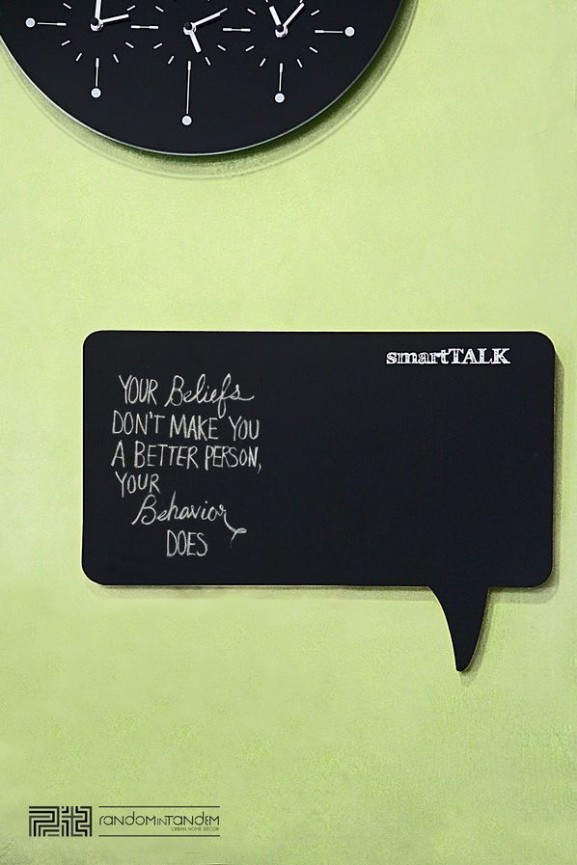 smartTALK
YOUR Beliefs
DON'T MAKE YOU
A BETTER PERSON,
YOUR
Behavior
DOES
randomINTandEM
URBAN HOME DECOR